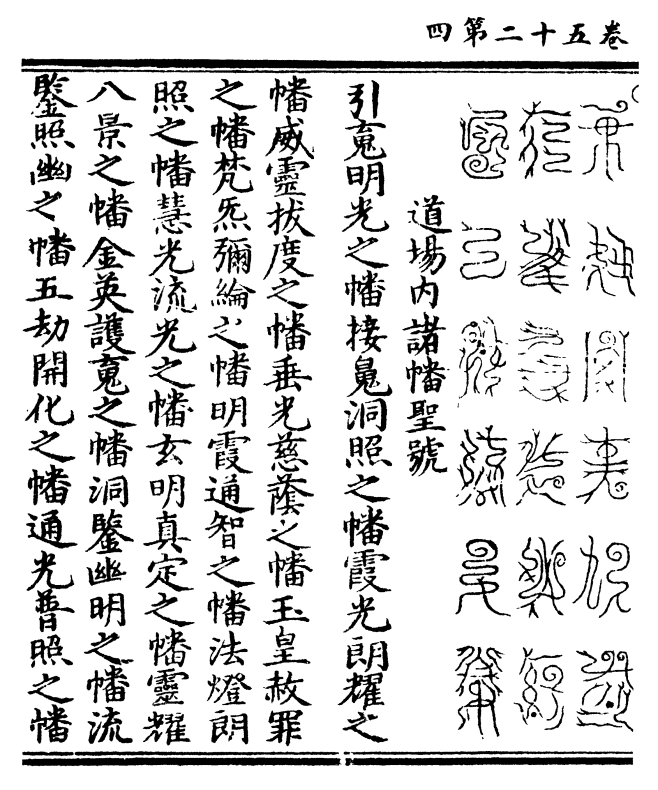 卷五十二第四
道場内諸幡聖號
引䰟明光之幡接魄洞照之幡霞光朗耀之
幡威靈拔度之幡垂光慈蔭之幡玉皇赦罪
之幡梵炁彌綸之幡明霞通智之幡法燈朗
照之幡慧光流光之幡玄明真定之幡靈耀
八景之幡金英護䰟之幡洞鑒幽明之幡流
鑒照幽之幡五劫開化之幡通光普照之幡